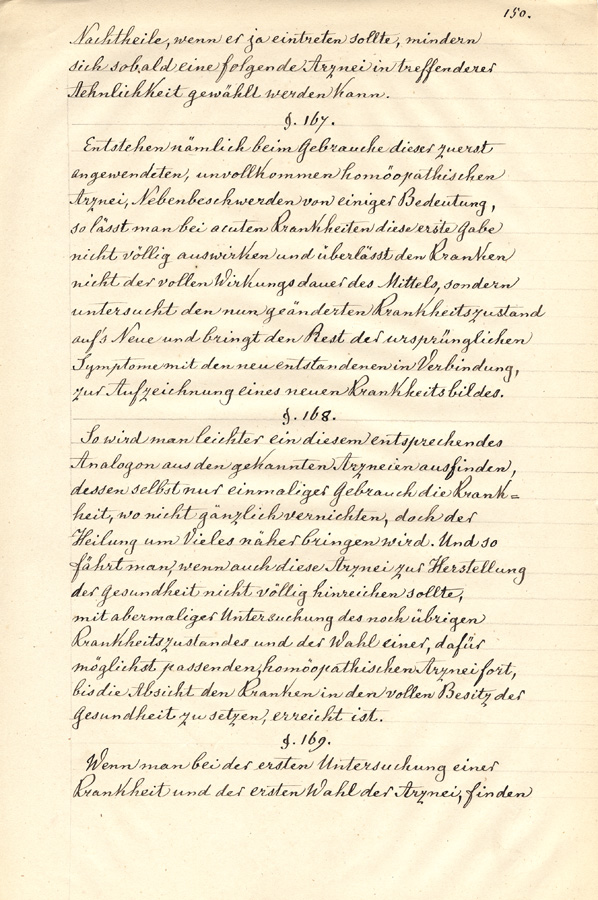 150.
Nachtheile, wenn er ja eintreten sollte, mindern
sich sobald eine folgende Arznei in treffenderer
Aehnlichkeit gewählt werden kann.
§. 167.
Entstehen nämlich beim Gebrauche dieser zuerst
angewendeten, unvollkommen homöopathischen
Arznei, Nebenbeschwerden von einiger Bedeutung,
so lässt man bei acuten Krankheiten diese erste Gabe
nicht völlig auswirken und überlässt den Kranken
nicht der vollen Wirkungsdauer des Mittels, sondern
untersucht den nun geänderten Krankheitszustand
auf's Neue und bringt den Rest der ursprünglichen
Symptome mit den neu entstandenen in Verbindung,
zur Aufzeichnung eines neuen Krankheitsbildes.
§. 168.
So wird man leichter ein diesem entsprechendes
Analogon aus den gekannten Arzneien ausfinden,
dessen selbst nur einmaliger Gebrauch die Krank=
heit, wo nicht gänzlich vernichten, doch der
Heilung um Vieles näher bringen wird. Und so
fährt man, wenn auch diese Arznei zur Herstellung
der Gesundheit nicht völlig hinreichen sollte,
mit abermaliger Untersuchung des noch übrigen
Krankheitszustandes und der Wahl einer, dafür
möglichst passenden, homöopathischen Arznei fort,
bis die Absicht den Kranken in den vollen Besitz der
Gesundheit zu setzen, erreicht ist.
§. 169.
Wenn man bei der ersten Untersuchung einer
Krankheit und der ersten Wahl der Arznei, finden